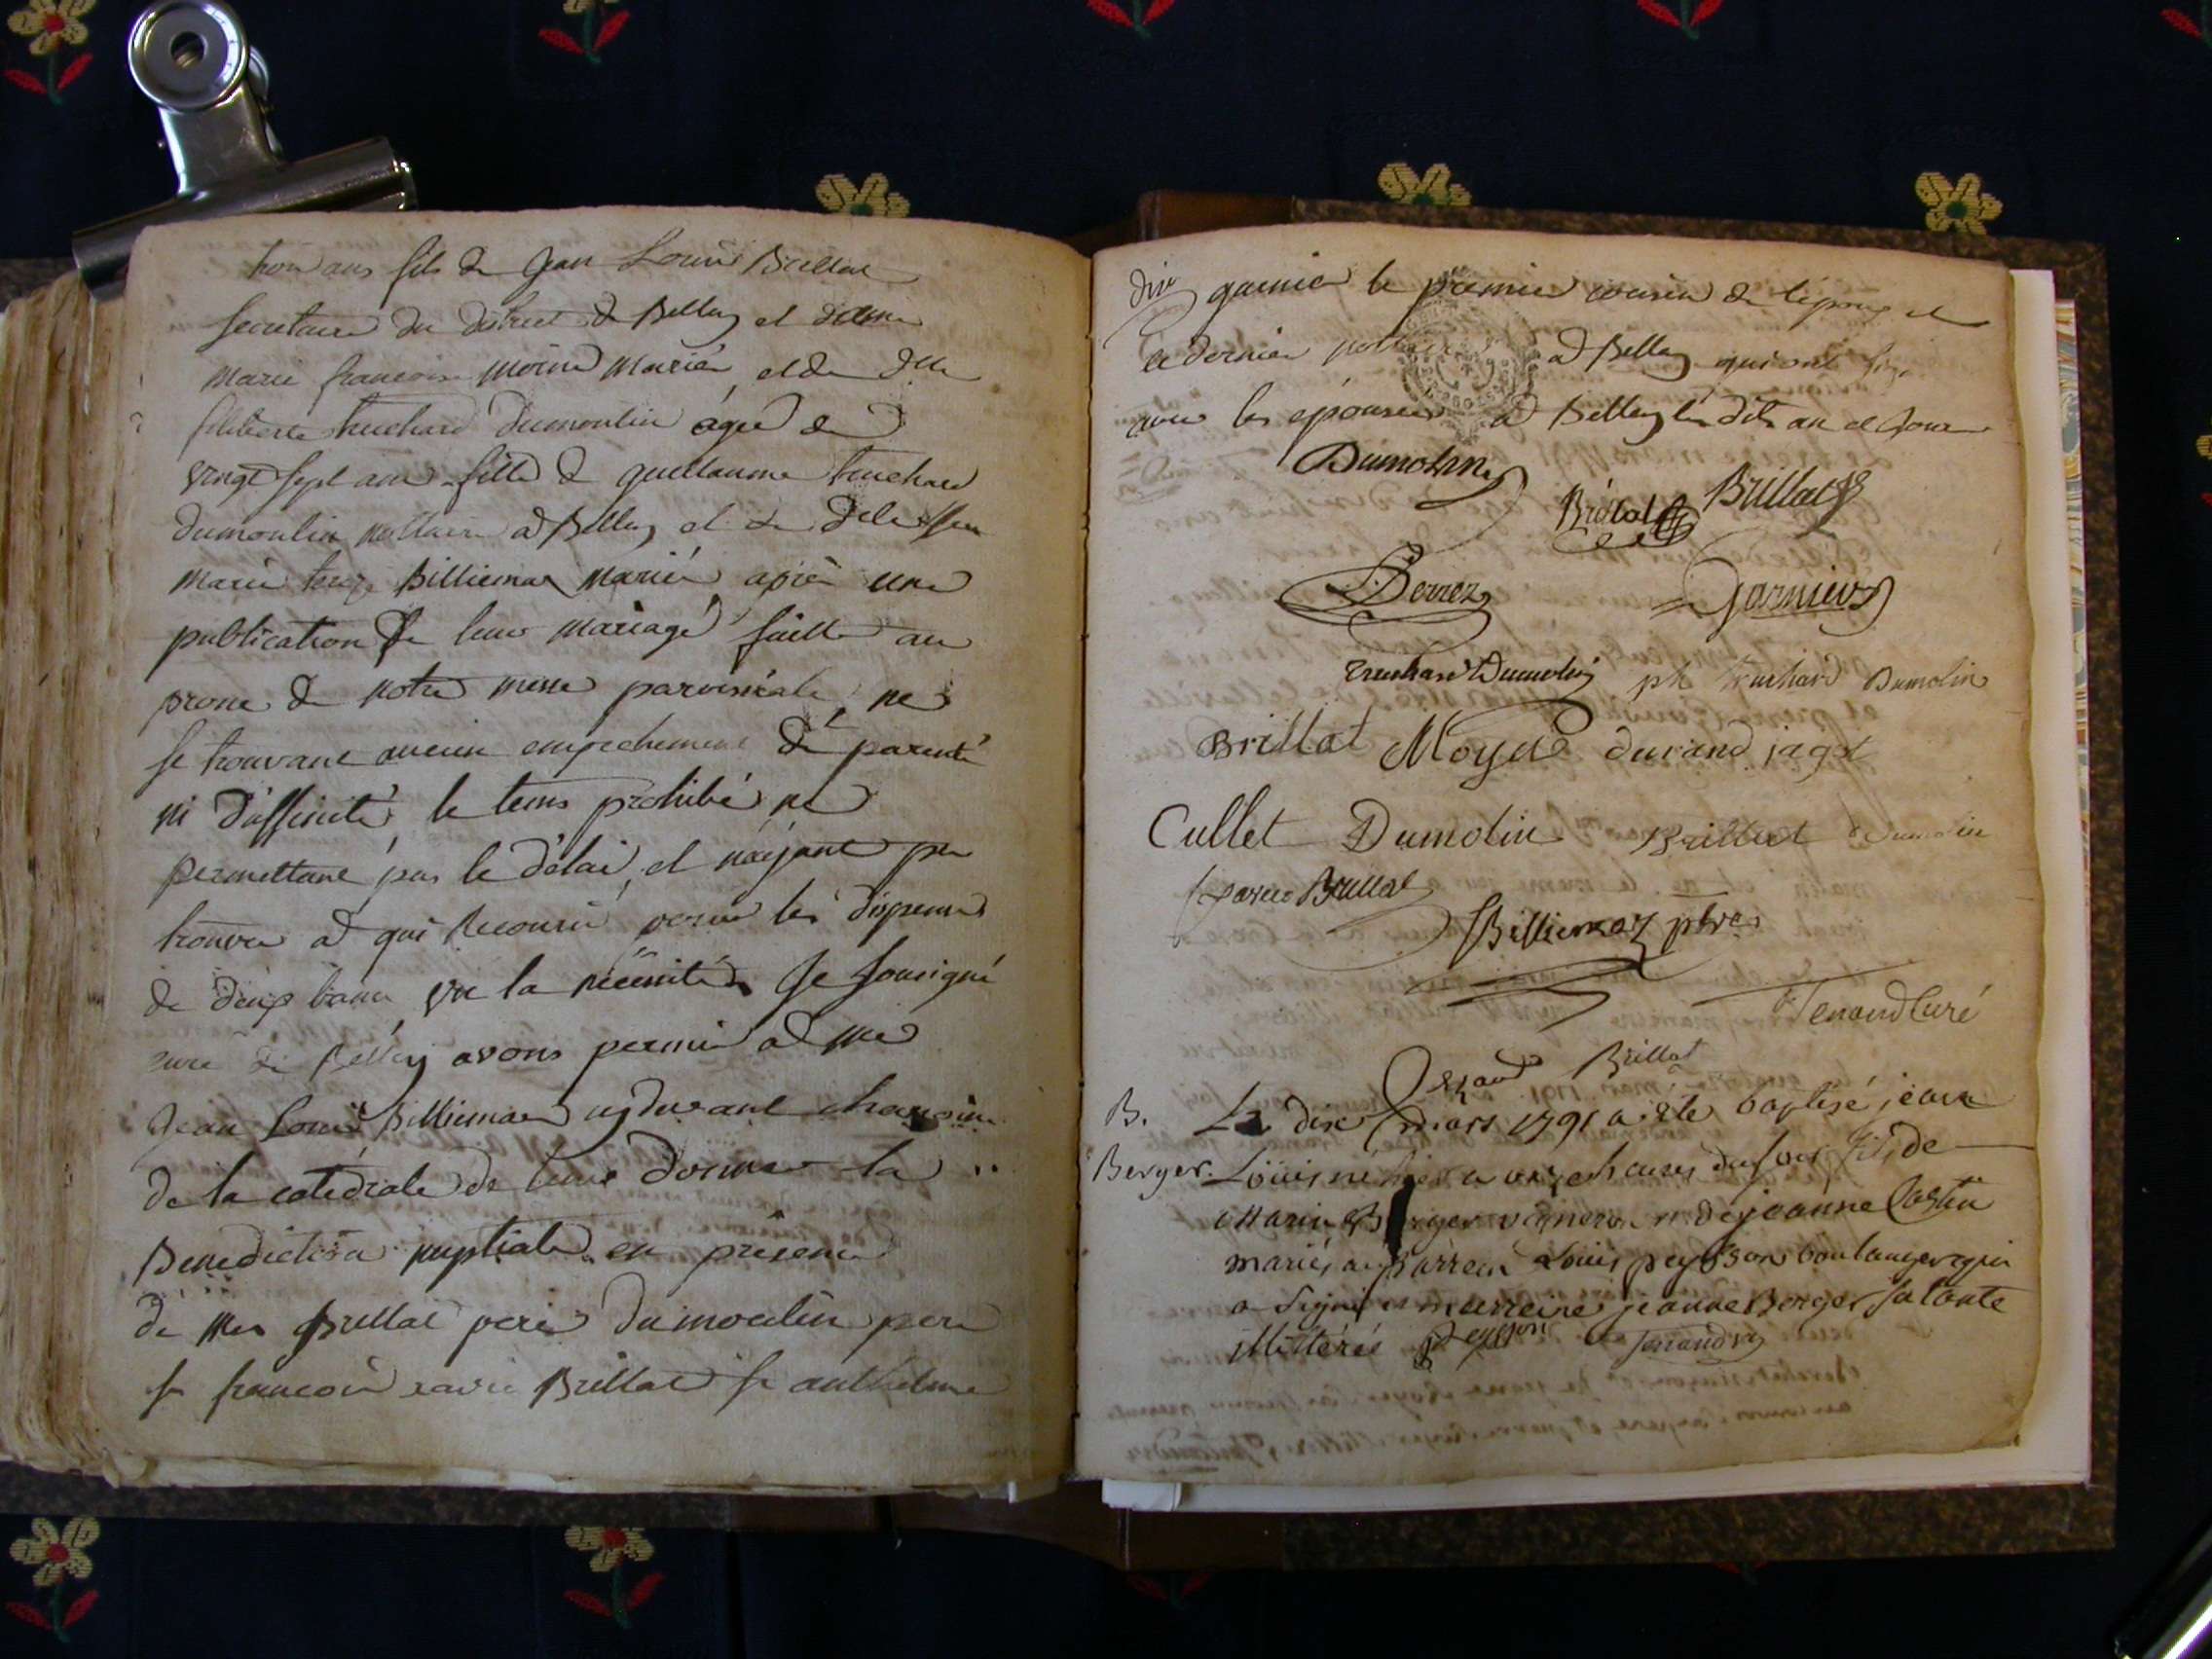 trois ans fils de Jean Louis Brillat
secretaire du district de Belley et dame
marie francoise moine mariés et de dlle
filiberte truchard dumoulin agée de
vingt sept ans fille de guillaume truchard
dumoulin nottaire a Belley et de
marie Billiemaz mariés, après une
publication de leur mariage faitte au
prone de notre messe paroissiale, ne
se trouvant aucun empechement de parenté
ni d'affinité, le tems prohibé ne
permettant pas le délai, et n'ayant pu
trouver a qui recourir pour les dispenses
de deux bans, vu la nécéssité, Je soussigné
curé de Belley avons permis a me
Jean Louis Billiemaz cy devant chanoine
de la catédrale de leur donner la
Benediction nuptiale en présence
de mes Brillat pere dumoulin pere
sr francois xavier Brillat sr anthelme
garnier le premier cousin de l'epoux et
ce dernier nottaire a Belley qui ont signé
avec les epousés a Belley les dits an et jour
Dumolin
Brillat Brillat
Derrez
Garnier
Truchard Dumolin ph truchard Dumolin
Brillat Moyne durand jagot
Cullet Dumolin Brillat Dumolin
Xavier Brillat
Billiemaz ptre
Tenand Curé
Brillat
B. Le dix mars 1791 a été baptisé jean
Berger. Louis né hier a onze heures du soir fils de
Marin Berger vigneron et de jeanne
mariés, Louis peysson boulanger qui
a signé et marreine jeanne Berger sa tante
illitérée Peysson